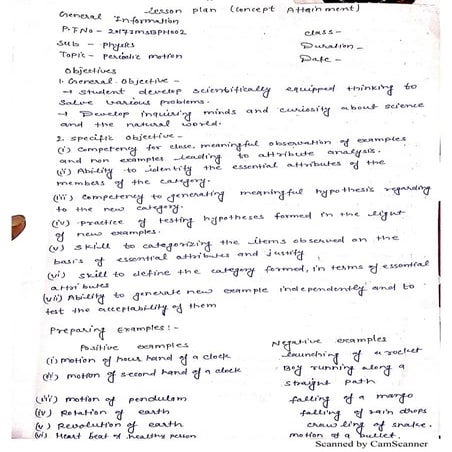 Lesson plan (Concept Attainment)
General Information
P.F.No - 20173MSBPH002 class-
Sub - Physics Duration-
Topic- Periodic motion Date -
Objectives
1. General Objective -
→ Student develop scientifically equipped thinking to
solve various problems.
→ Develop inquiring minds and curiosity about science
and the natural world.
2. Specific Objective -
(i) Competency for close, meaningful observation of examples
and non examples leading to attribute analysis.
(ii) Ability to identify the essential attributes of the
members of the category.
(iii) Competency to generating meaningful hypothesis regarding
to the new category.
(iv) practice of testing hypotheses formed in the light
of new examples.
(v) Skill to categorizing the items observed on the
basis of essential attributes and justify
(vi) Skill to define the category formed, in terms of essential
attributes
(vii) Ability to generate new example independently and to
test the acceptability of them
Preparing Examples:-
Positive examples Negative examples
(i) motion of hour hand of a clock launching of a rocket
(ii) motion of second hand of a clock Boy running along a
straight path
(iii) motion of pendulam falling of a mango
(iv) Rotation of earth falling of rain drops
(v) Revolution of earth crawling of snake.
(vi) Heart beat of healthy person motion of a bullet.
Scanned by CamScanner